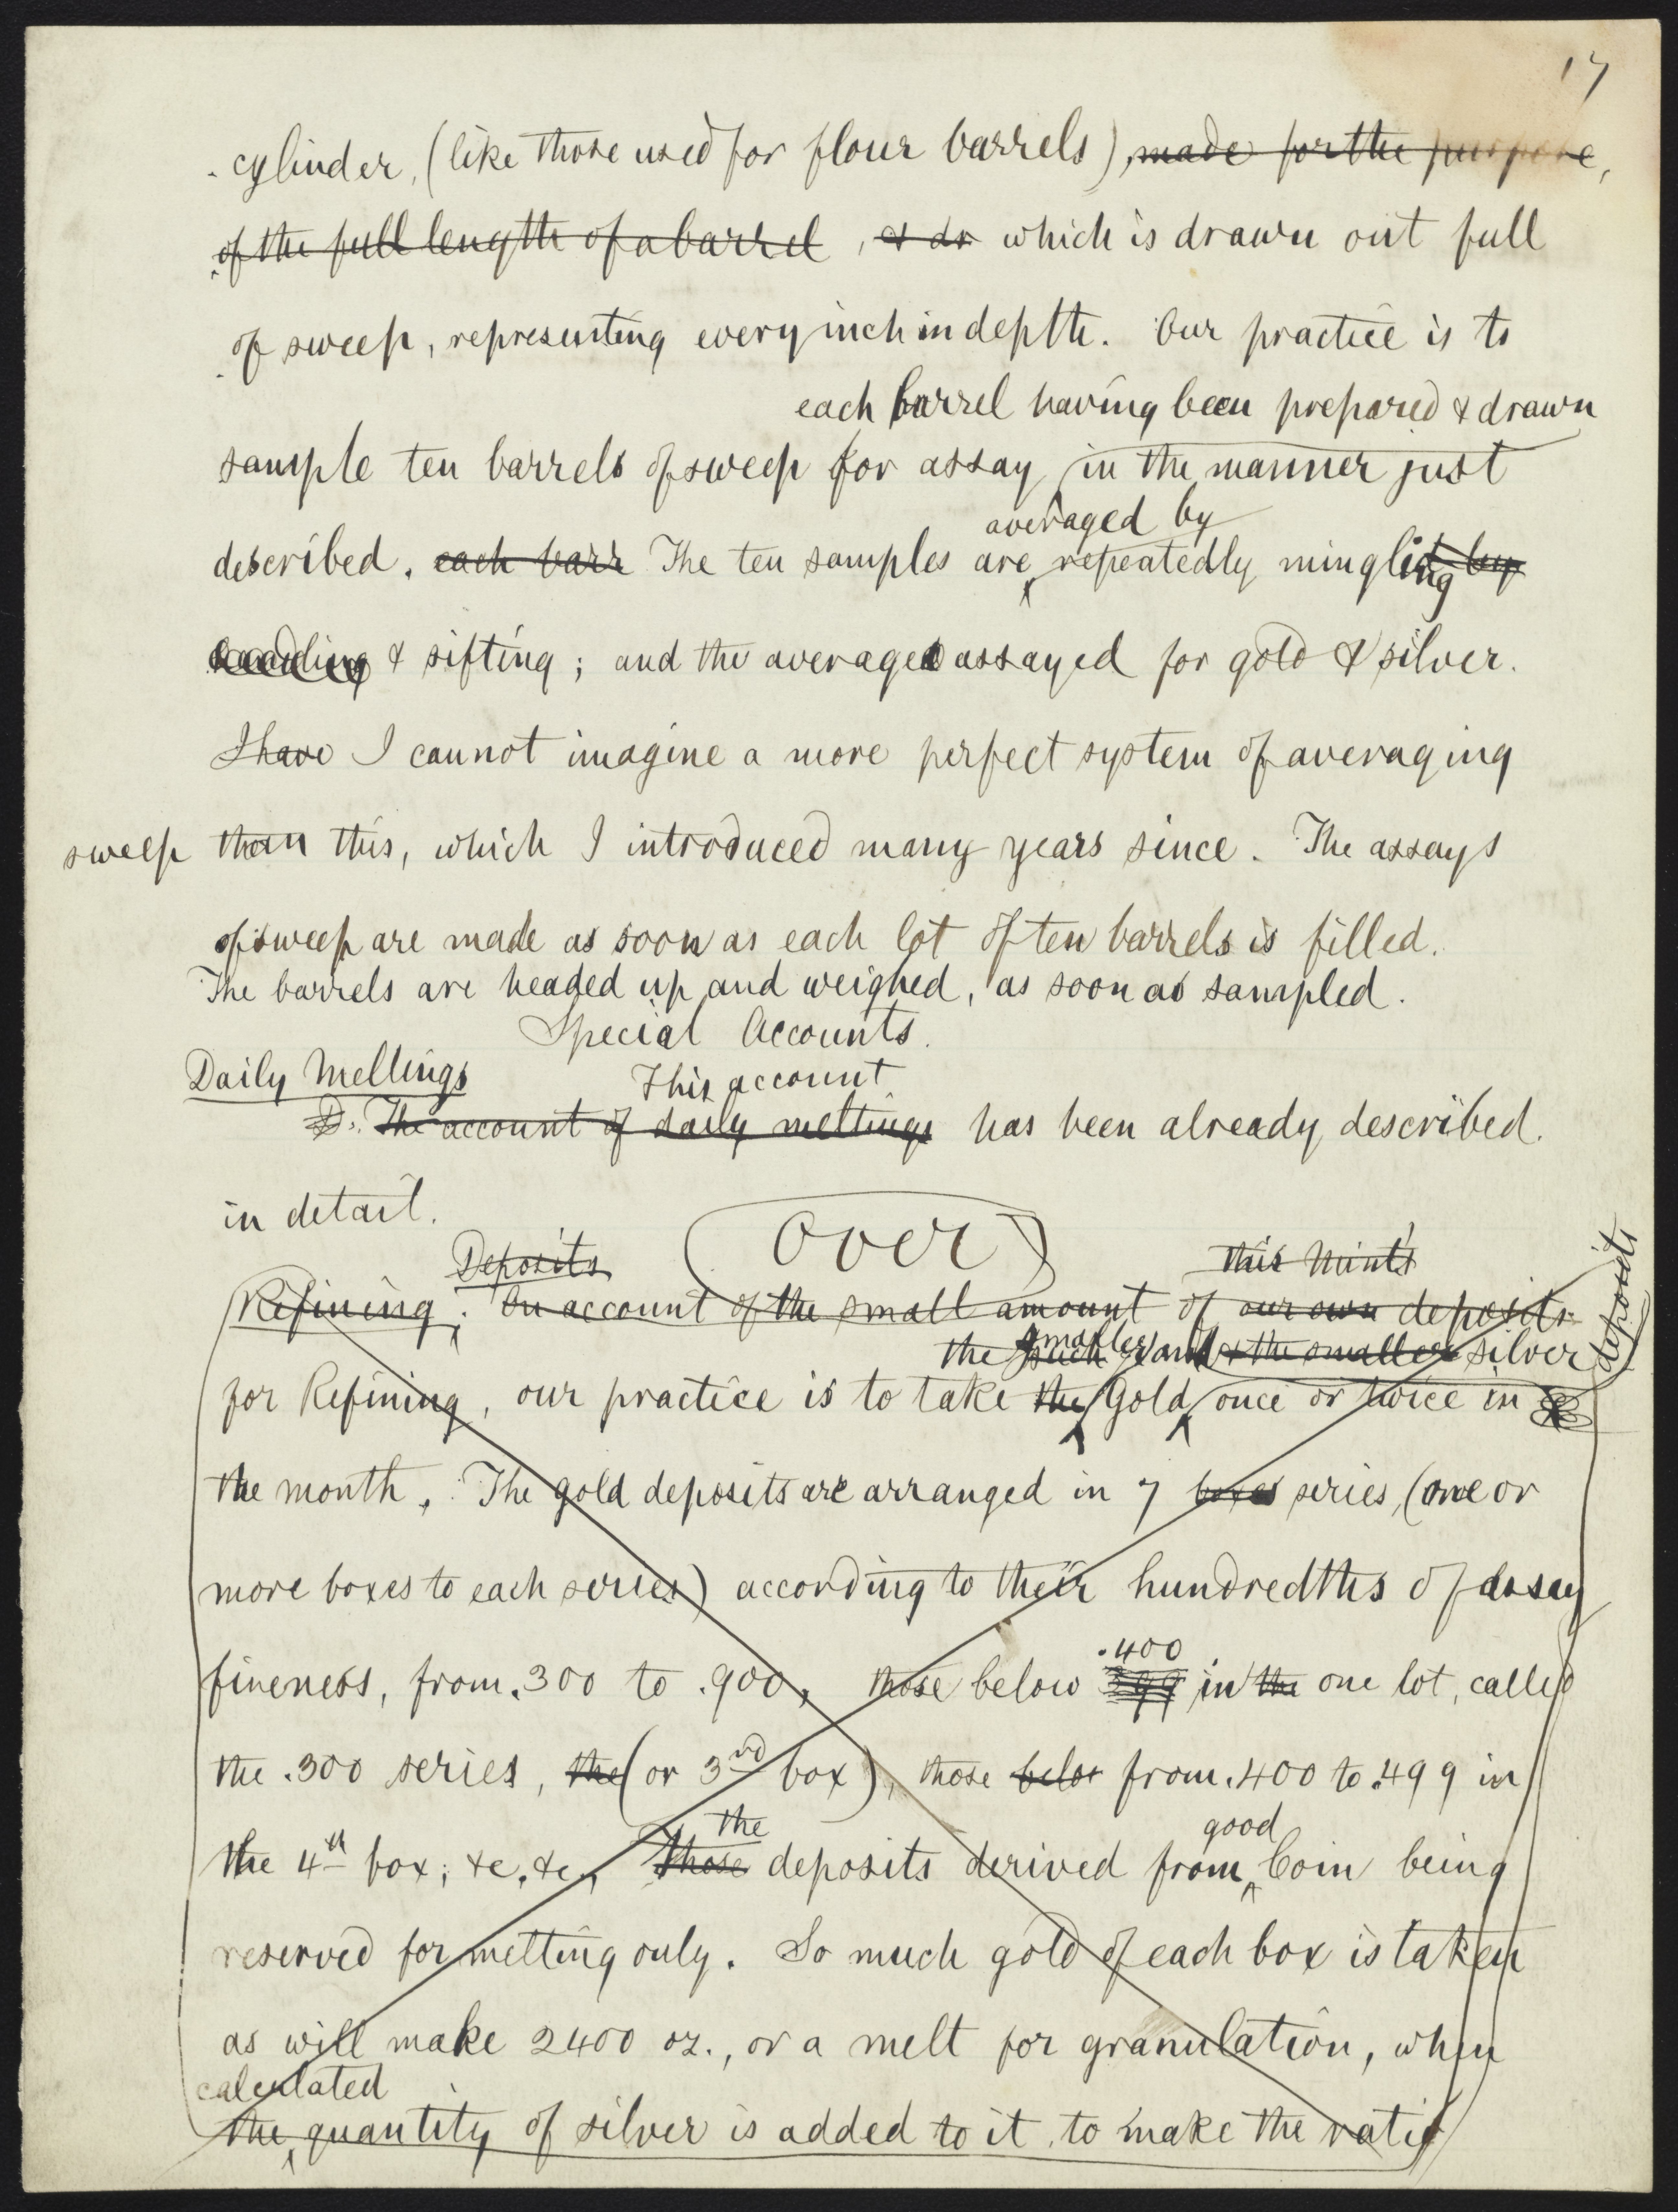 17
cylinder, (like those used for flour barrels), made for the purpose,
of the full length of a barrel, & dr which is drawn out full
of sweep, representing every inch in depth. Our practice is to
each barrel having been prepared & drawn
sample ten barrels of sweep for assay, in the manner just
averaged by
described. each barr The ten samples are repeatedly mingling
& sifting; and the average assayed for gold & silver.
I have I cannot imagine a more perfect system of averaging
sweep than this, which I introduced many years since. The assays
of sweep are made as soon as each lot of ten barrels is filled.
The barrels are headed up and weighed, as soon as sampled.
Special Accounts.
Daily Meltings
This account
D. The account of daily meltings has been already described.
in detail.
Over
Deposits
this Mint's
Refining. On account of the small amount of our own deposits
deposits
the smaller and & the smaller silver
for Refining, our practice is to take the Gold once or twice in
the month. The gold deposits are arranged in 7 boxes series, (one or
more boxes to each series) according to their hundredths of assay
fineness, from .300 to .900, those below 399 in the one lot, called
.400
the .300 series, the (or 3rd box), those belo from .400 to .499 in
the
good
the 4th box, &c, &c., Those deposits derived from Coin being
reserved for melting only. So much gold of each box is taken
as will make 2400 oz., or a melt for granulation, when
calculated
the quantity of silver is added to it, to make the ratio